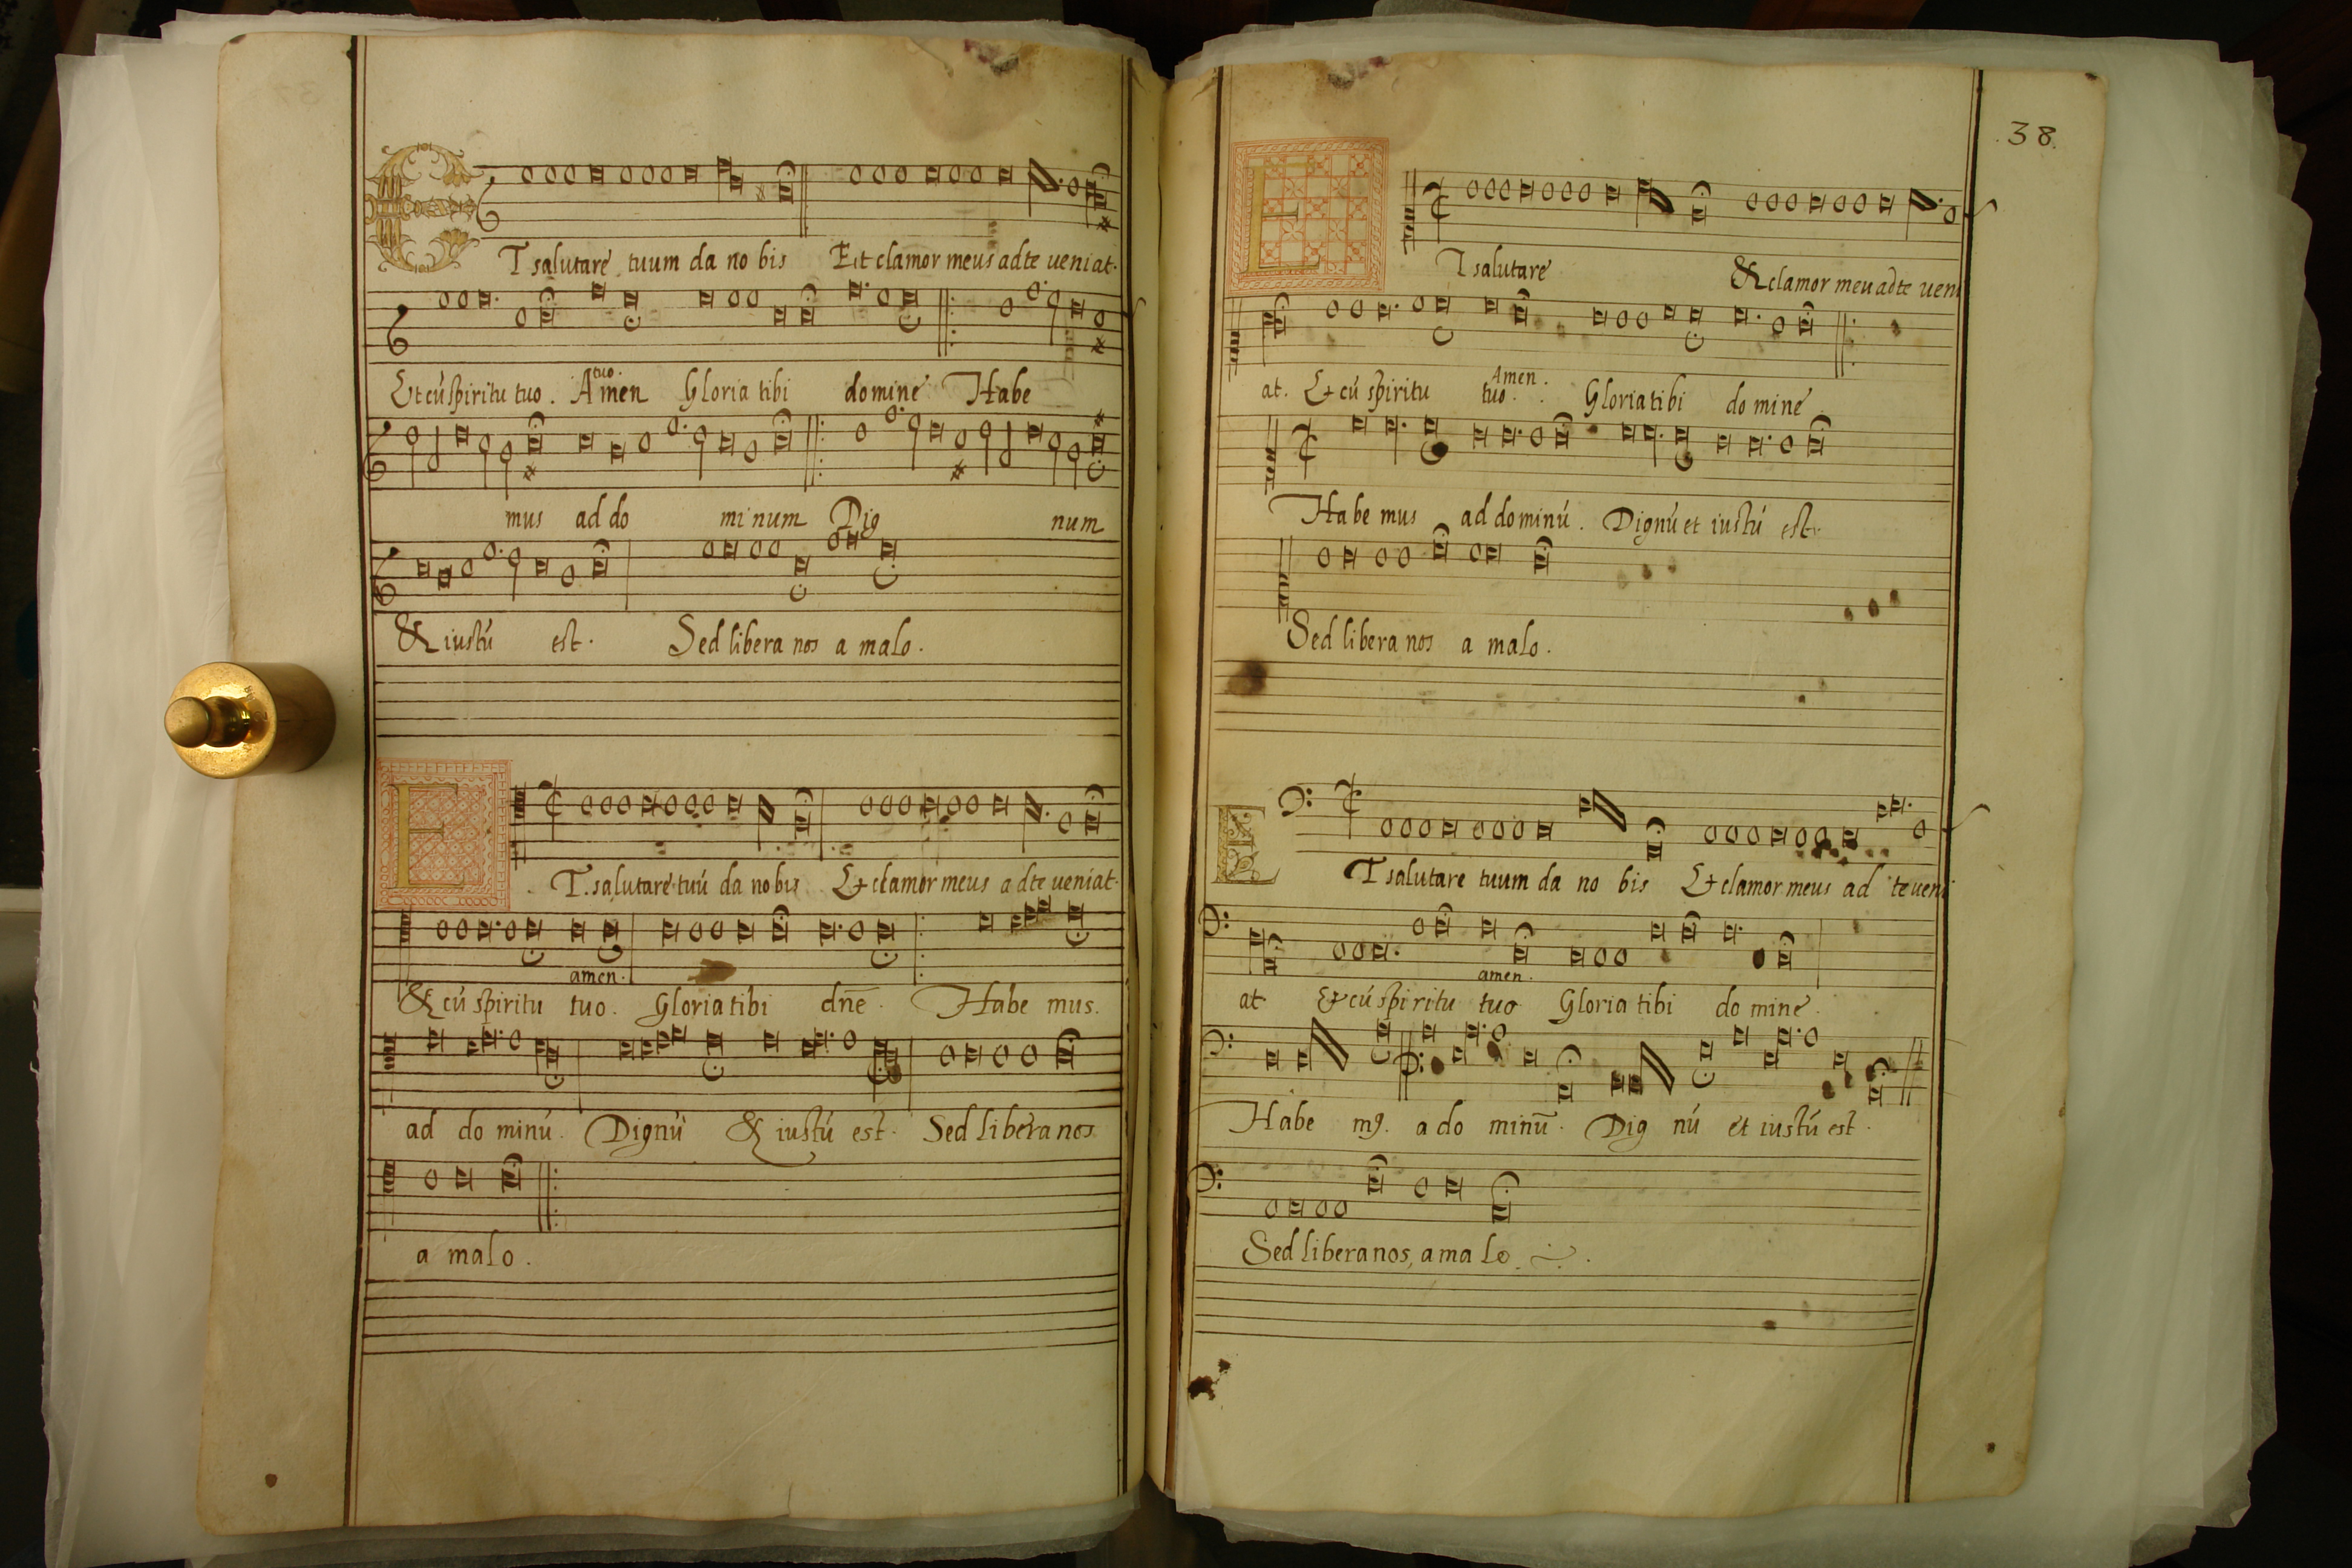 ET salutare tuum da no bis Et clamor meus ad te veniat.
tuo.
Et cú spiritu tuo. Amen Gloria tibi domine Habe
mus ad do mi num Dig num
& iustú est. Sed libera nos a malo.
ET. salutare tuú da nobis Et clamor meus a dte veniat.
amen.
& cú spiritu tuo. Gloria tibi dn̄e. Habe mus.
ad do minú. Dignú & iustú est. Sed libera nos
a malo.
38.
ET salutare & clamor meu ad te veni
Amen.
at. Et cú spiritu tuo. Gloria tibi do mine.
Habe mus ad dominú. Dignú et iustú est.
Sed libera nos a malo.
ET salutare tuum da no bis Et clamor meus ad te veni
amen.
at Et cú spiritu tuo Gloria tibi do mine.
Habe mꝯ. a do minū. Dig nú et iustú est.
Sed libera nos, a ma lo.